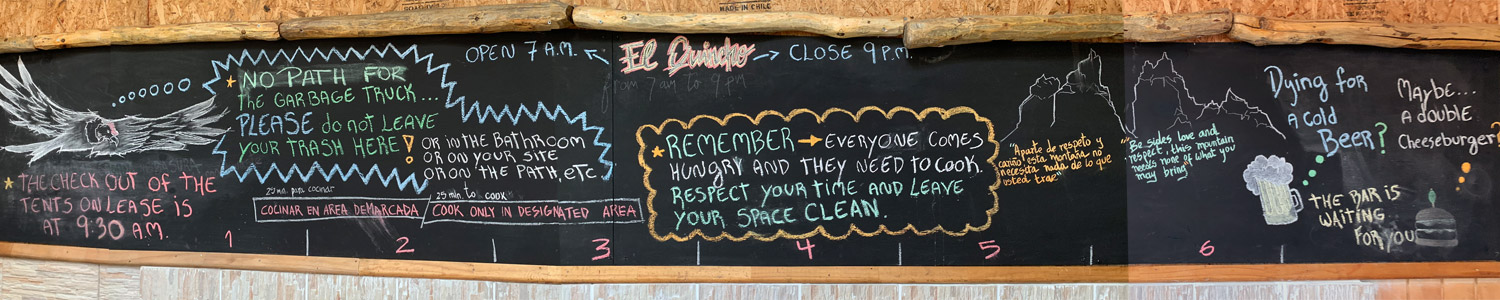 MADE IN CHILE
OPEN 7 A.M.
El Quincho
CLOSE 9 P.M.
from 7am to 9 PM
NO PATH FOR
THE GARBAGE TRUCK...
PLEASE do not LEAVE
YOUR TRASH HERE!
OR IN THE BATHROOM
OR ON YOUR SITE
OR ON THE PATH, ETC.
THE CHECK OUT OF THE
TENTS ON LEASE IS
AT 9:30 A.M.
25 min. para cocinar
COCINAR EN AREA DEMARCADA
25 min. to cook
COOK ONLY IN DESIGNATED AREA
REMEMBER → EVERYONE COMES
HUNGRY AND THEY NEED TO COOK.
RESPECT YOUR TIME AND LEAVE
YOUR SPACE CLEAN.
"Aparte de respeto y
cariño, esta montaña no
necesita nada de lo que
usted trae"
"Besides love and
respect, this mountain
needs none of what you
may bring"
Dying for
a Cold
Beer?
MAYBE...
A double
Cheeseburger?
THE BAR IS
WAITING
FOR YOU
1
2
3
4
5
6